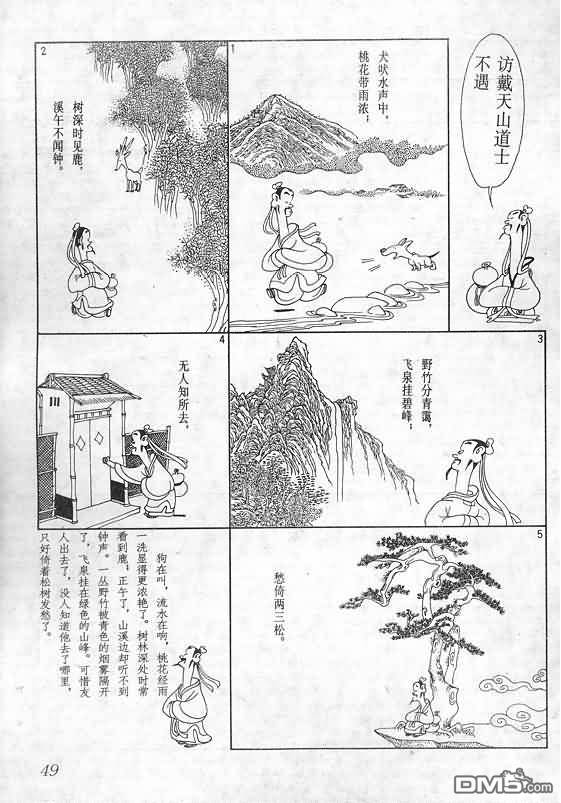 访戴天山道士
不遇
1
犬吠水声中，
桃花带雨浓；
2
树深时见鹿，
溪午不闻钟。
3
野竹分青霭，
飞泉挂碧峰；
4
无人知所去，
5
愁倚两三松。
狗在叫，流水在响，桃花经雨
一洗显得更浓艳了。树林深处时常
看到鹿；正午了，山溪边却听不到
钟声。一丛野竹被青色的烟雾隔开
了，飞泉挂在绿色的山峰。可惜友
人出去了，没人知道他去了哪里，
只好倚着松树发愁了。
49
DM5.com